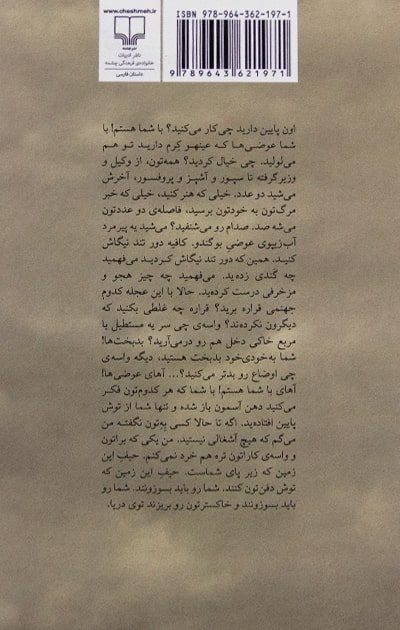 www.cheshmeh.ir
نشر چشمه
ناشر ادبیات
خانواده‌ی فرهنگی چشمه
داستان فارسی
ISBN 978-964-362-197-1
9 789643 621971
اون پایین دارید چی‌کار می‌کنید؟ با شما هستم! با
شما عوضی‌ها که عینهو کِرم دارید تو هم
می‌لولید. چی خیال کردید؟ همه‌تون، از وکیل و
وزیر گرفته تا سپور و آشپز و پروفسور، آخرش
می‌شید دو عدد. خیلی که هنر کنید، خیلی که خبر
مرگ‌تون به خودتون برسید، فاصله‌ی دو عددتون
می‌شه صد. صدام رو می‌شنفید؟ می‌شید یه پیرمرد
آب‌زیپوی عوضیِ بوگندو. کافیه دور تند نیگاش
کنید. همین که دور تند نیگاش کردید می‌فهمید
چه گندی زده‌ید. می‌فهمید چه چیز هجو و
مزخرفی درست کرده‌ید. حالا با این عجله کدوم
جهنمی قراره برید؟ قراره چه غلطی بکنید که
دیگرون نکرده‌ند؟ واسه‌ی چی سر یه مستطیل یا
مربع خاکی دخل هم رو درمی‌آرید؟ بدبخت‌ها!
شما به‌خودی‌خود بدبخت هستید، دیگه واسه‌ی
چی اوضاع رو بدتر می‌کنید؟... آهای عوضی‌ها!
آهای با شما هستم! با شما که هر کدوم‌تون فکر
می‌کنید دهن آسمون باز شده و تنها شما از توش
پایین افتاده‌ید. اگه تا حالا کسی بِهِ‌تون نگفته من
می‌گم که هیچ آشغالی نیستید. من یکی که براتون
و واسه‌ی کاراتون تره هم خرد نمی‌کنم. حیفِ این
زمین که زیر پای شماست. حیفِ این زمین که
توش دفن‌تون کنند. شما رو باید بسوزونند. شما رو
باید بسوزونند و خاکسترتون رو بریزند توی دریا.